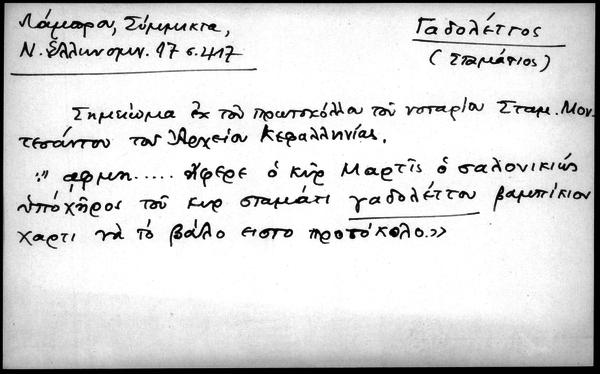 Λάμπρου, Σύμμικτα,
Ν. Ἑλληνομν. 17 σ. 417
Γαδολέττος
(Σταμάτιος)
Σημείωμα ἐκ τοῦ πρωτοκόλλου τοῦ νοταρίου Σταμ. Μον-
τεσάντου τοῦ Ἀρχείου Κεφαλληνίας.
"αφμη..... ἤφερε ὁ κὺρ Μαρτῖς ὁ σαλονικιώς
ὑπόχῆρος τοῦ κυρ σταμάτι γαδολέττου βαμπίκιον
χαρτι νὰ τὸ βάλο εισto προτόκολο.»